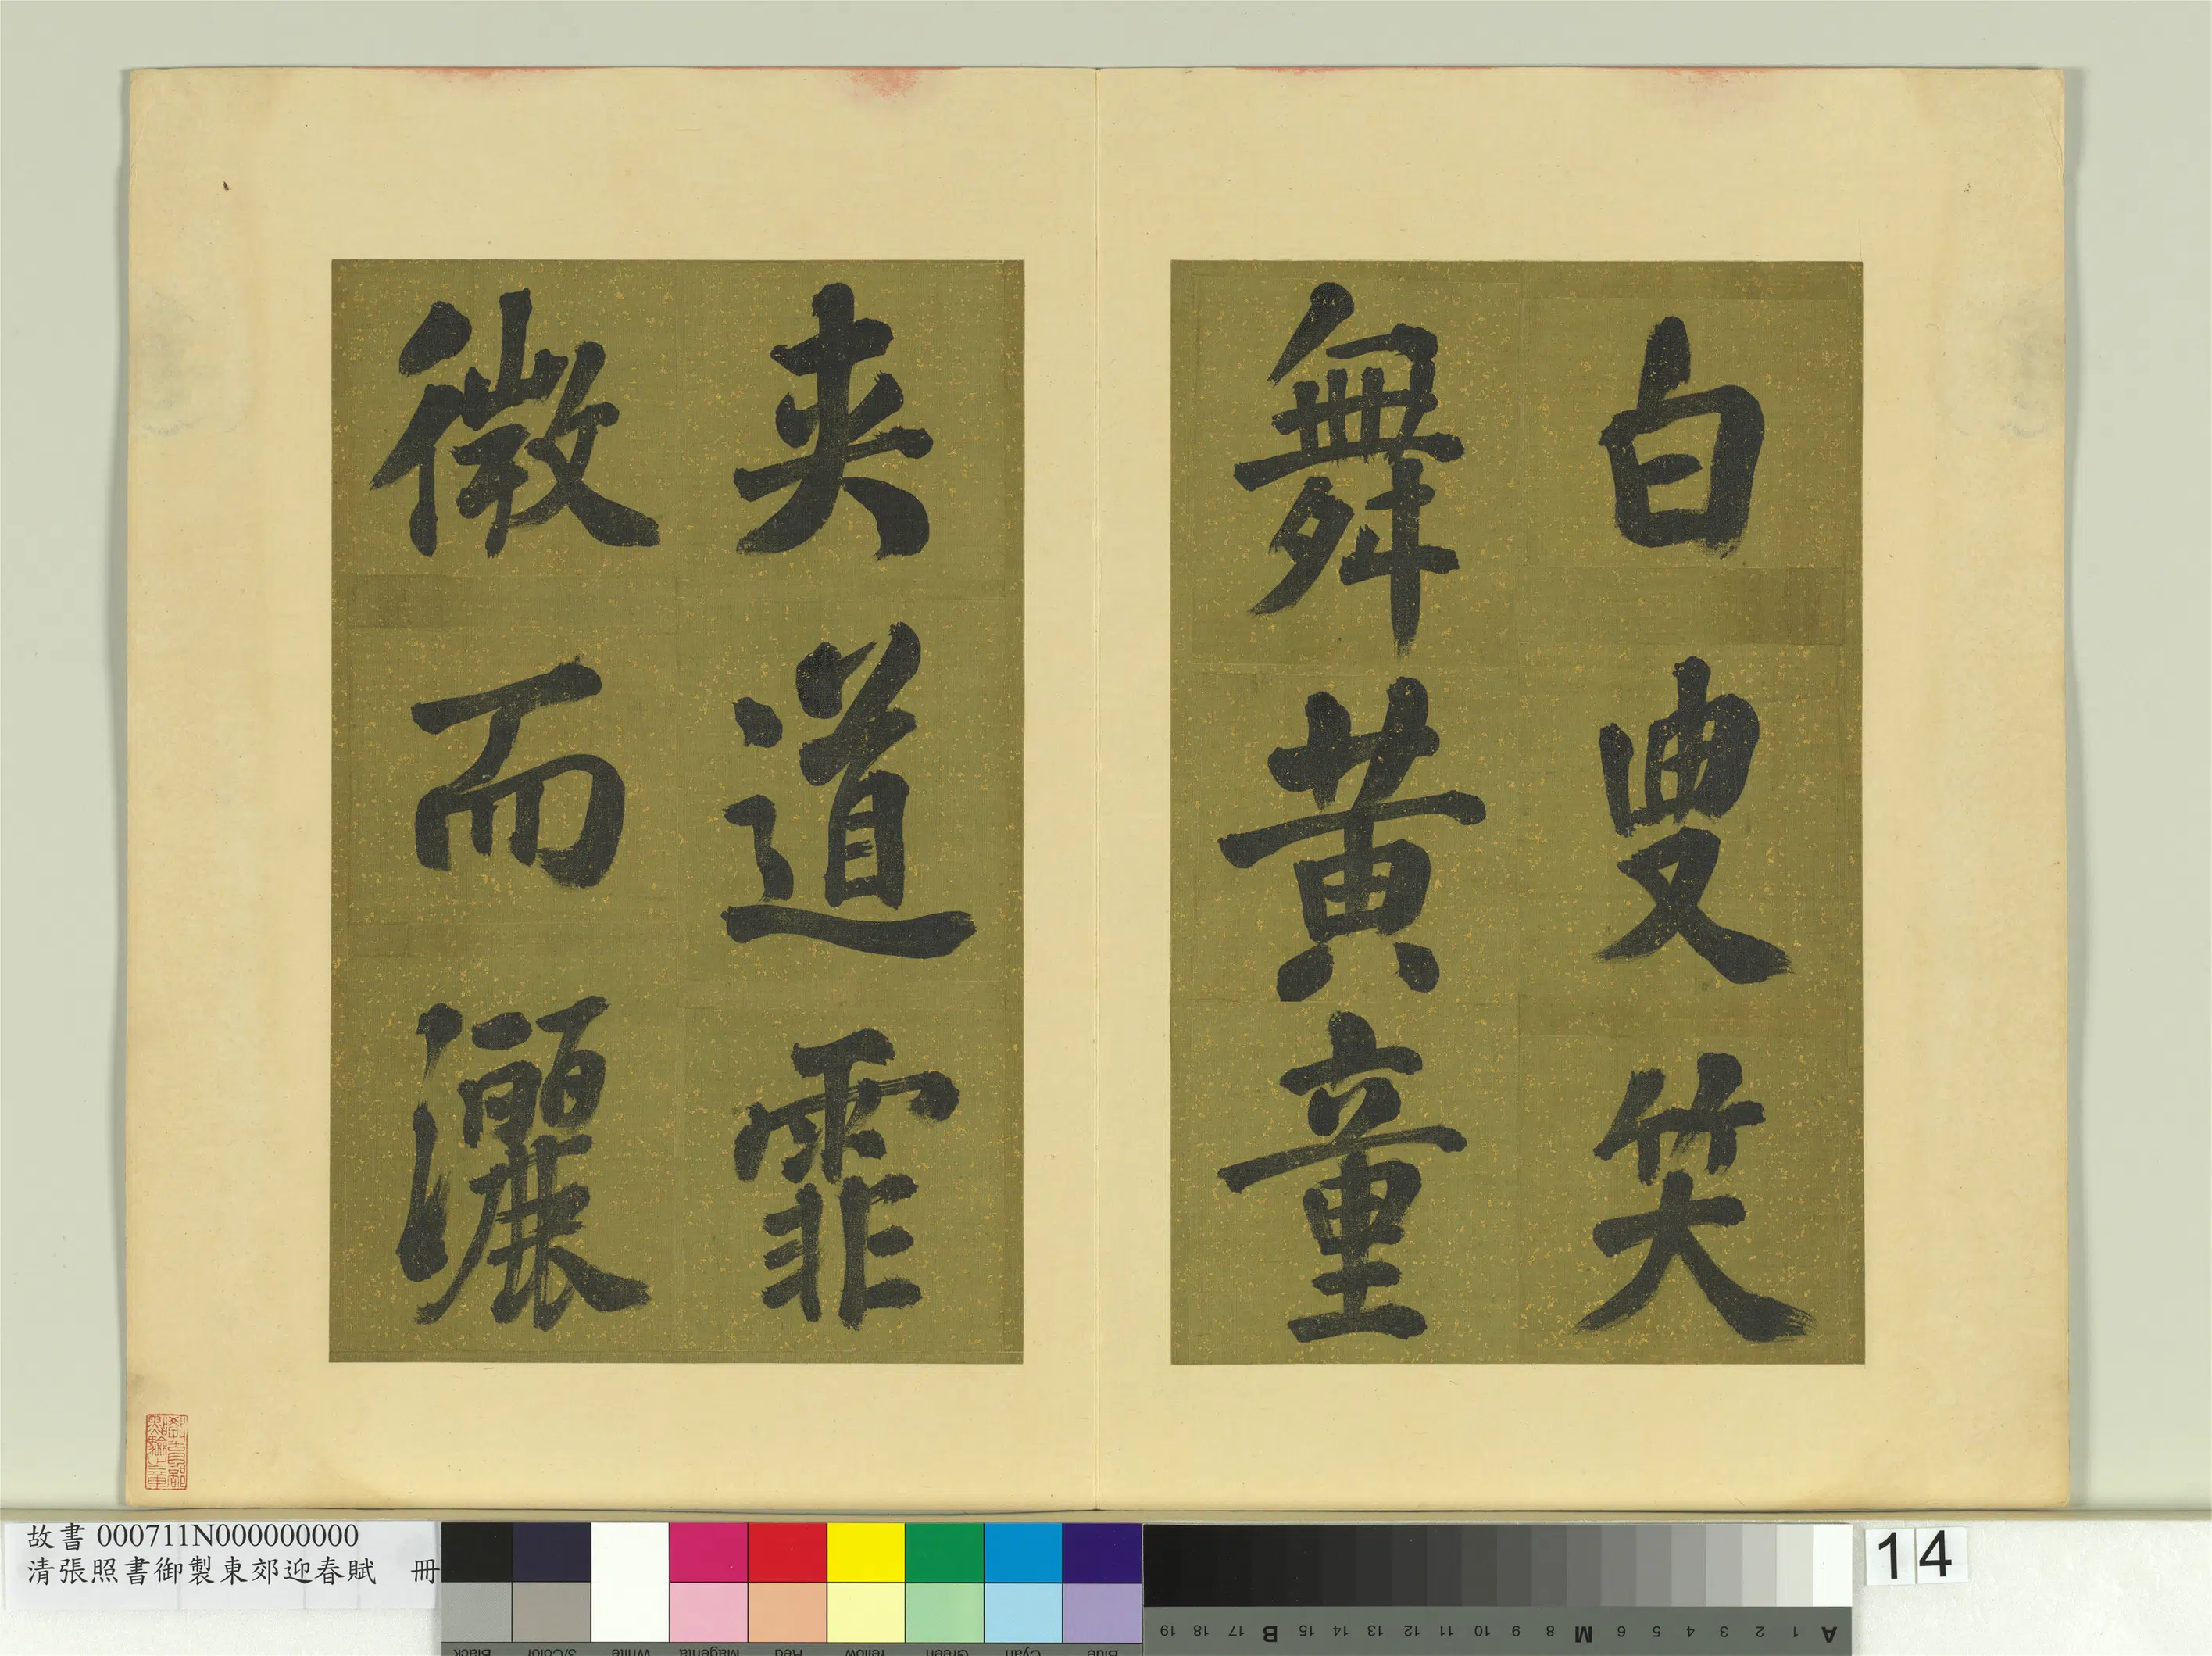 白叟笑
舞黃童
夾道霏
微而灑
故書 000711N000000000
清張照書御製東郊迎春賦 冊
14
Black 3/Color White Magenta Red Yellow Green Cyan Blue
A 1 2 3 4 5 6 M 8 9 10 11 12 13 14 15 B 17 18 19